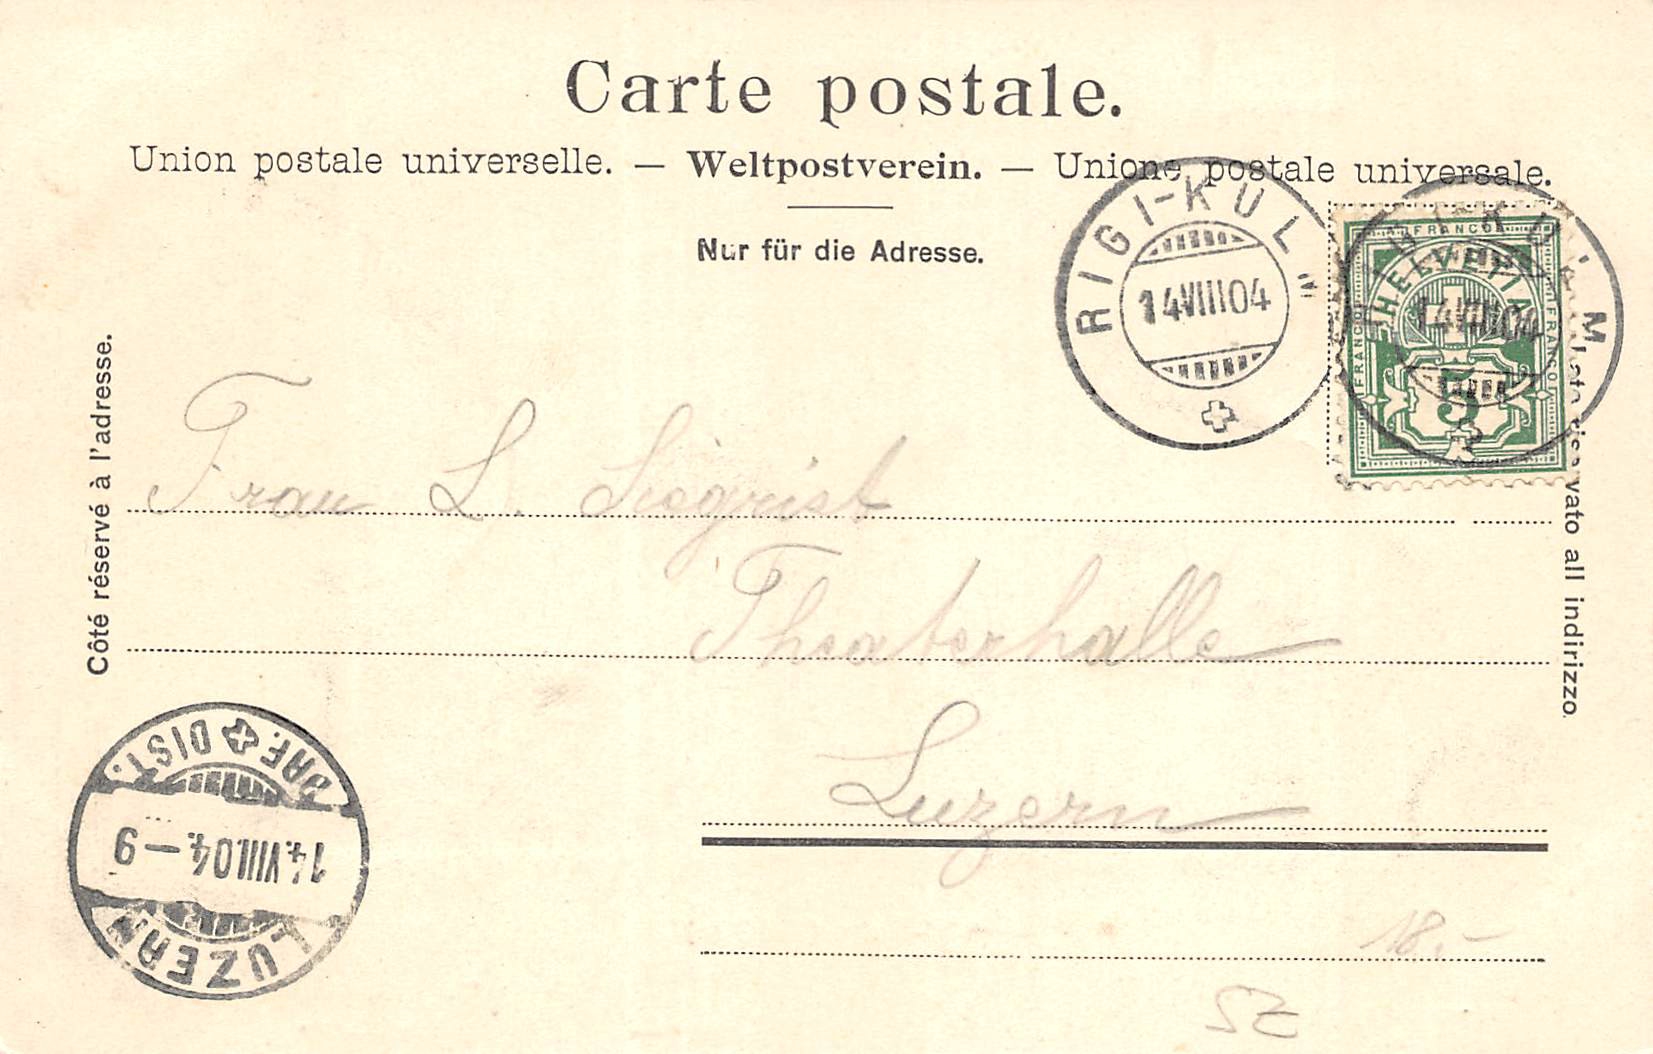 Carte postale.
Union postale universelle. — Weltpostverein. — Unione postale universale.
Nur für die Adresse.
RIGI-KULM
14VIII04
RIGI-KULM
14VIII04
FRANCO
HELVETIA
FRANCO
FRANCO
5
Côté réservé à l'adresse.
Lato riservato all indirizzo.
Frau L. Siegrist
Theaterhalle
Luzern
LUZERN
14.VIII.04.–9
BRF. DIST.
18.–
SZ